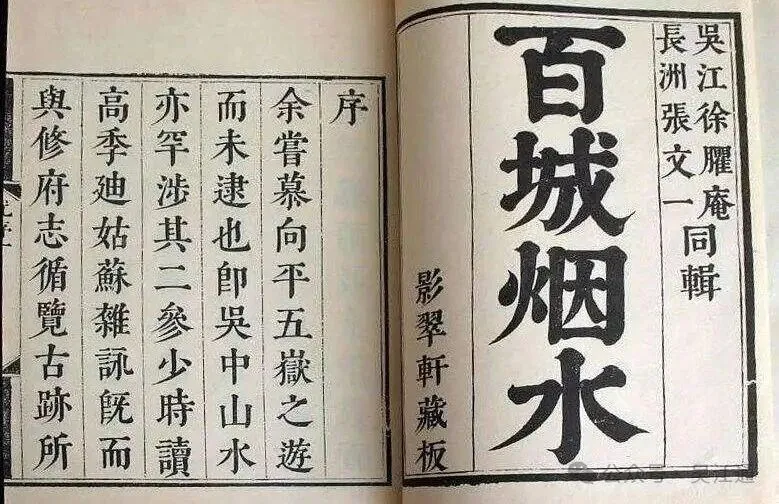 吳江徐臞庵
長洲張文一同輯
百城烟水
影翠軒藏板
序
余嘗慕向平五嶽之遊
而未逮也卽吳中山水
亦罕涉其二參少時讀
高季廸姑蘇雜詠旣而
與修府志循覽古跡所
公众号·吴江通